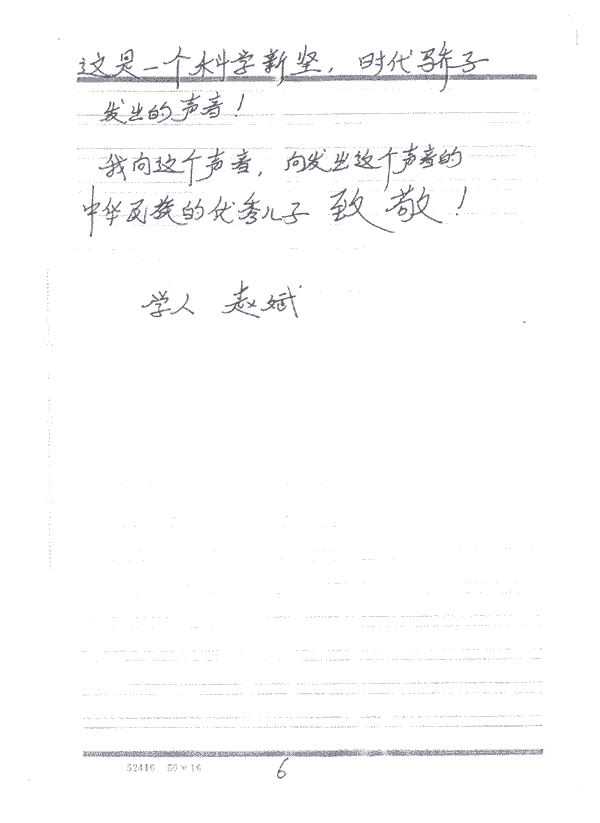 这是一个科学新坚，时代骄子
发出的声音！
我向这个声音，向发出这个声音的
中华民族的优秀儿子 致敬！
学人 赵斌
52416 50×16
6